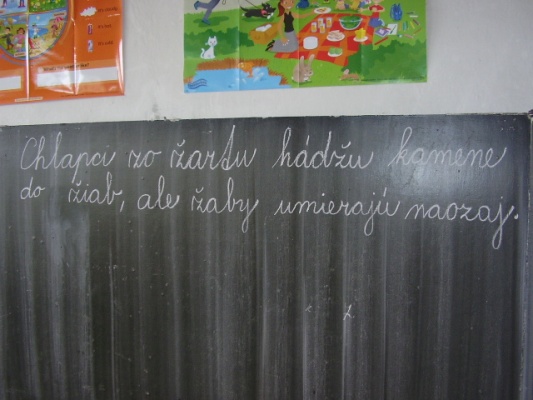 Chlapci zo žartu hádžu kamene
do žiab, ale žaby umierajú naozaj.